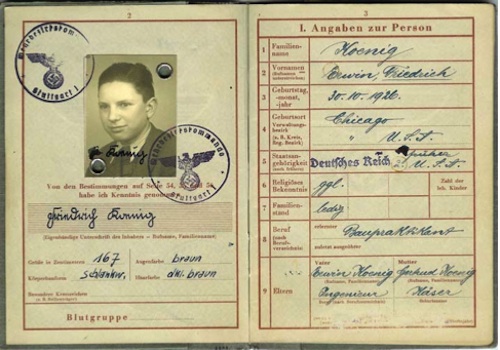 2
Stuttgart 1
Koenig
Stuttgart 1
Von den Bestimmungen auf Seite 54,
habe ich Kenntnis genommen
Friedrich Koenig
(Eigenhändige Unterschrift des Inhabers — Rufname, Familienname)
Größe in Zentimetern 167 Augenfarbe braun
Körperbauform schlank Haarfarbe dkl. braun
Besondere Kennzeichen
Blutgruppe
3
I. Angaben zur Person
1 Familien-
name Koenig
2 Vornamen
(Rufnamen unterstreichen) Erwin, Friedrich
3 Geburtstag,
-monat,
-jahr 30.10.1926
4 Geburtsort
Verwaltungs-
bezirk
(z. B. Kreis,
Reg.-Bezirk) Chicago
" U.S.A.
5 Staatsan-
gehörigkeit
(auch frühere) Deutsches Reich früher
U.S.A.
6 Religiöses
Bekenntnis ggl. Zahl der
leb. Kinder
7 Familien-
stand ledig
8 Beruf
(nach Berufs-
verzeichnis) erlernter Baupraktikant
zuletzt ausgeübter
9 Eltern Vater Mutter
Erwin Koenig Gertrud Koenig
(Rufname, Familienname) (Rufname, Familienname)
Ingenieur